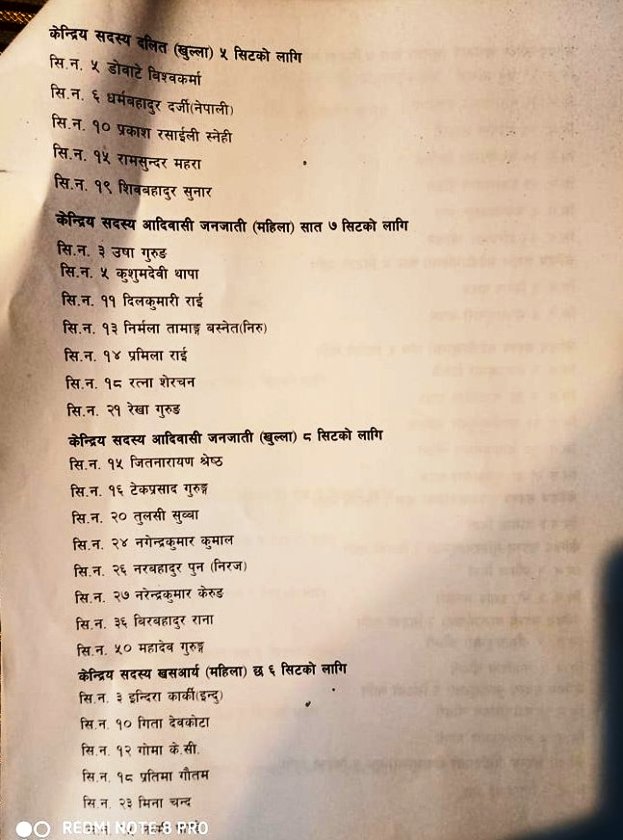 केन्द्रिय सदस्य दलित (खुल्ला) ५ सिटको लागि
सि.न. ५ डोवाटे बिश्वकर्मा
सि.न. ६ धर्मबहादुर दर्जी(नेपाली)
सि.न. १० प्रकाश रसाईली स्नेही
सि.न. १५ रामसुन्दर महरा
सि.न. १९ शिवबहादुर सुनार
केन्द्रिय सदस्य आदिवासी जनजाती (महिला) सात ७ सिटको लागि
सि.न. ३ उषा गुरुङ
सि.न. ५ कुशुमदेवी थापा
सि.न. ११ दिलकुमारी राई
सि.न. १३ निर्मला तामाङ्ग बस्नेत(निरु)
सि.न. १४ प्रमिला राई
सि.न. १८ रत्ना शेरचन
सि.न. २१ रेखा गुरुङ
केन्द्रिय सदस्य आदिवासी जनजाती (खुल्ला) ८ सिटको लागि
सि.न. १५ जितनारायण श्रेष्ठ
सि.न. १६ टेकप्रसाद गुरुङ्ग
सि.न. २० तुलसी सुब्बा
सि.न. २४ नगेन्द्रकुमार कुमाल
सि.न. २६ नरबहादुर पुन (निरज)
सि.न. २७ नरेन्द्रकुमार केरुङ
सि.न. ३६ बिरबहादुर राना
सि.न. ५० महादेव गुरुङ्ग
केन्द्रिय सदस्य खसआर्य (महिला) छ ६ सिटको लागि
सि.न. ३ इन्दिरा कार्की(इन्दु)
सि.न. १० गिता देवकोटा
सि.न. १२ गोमा के.सी.
सि.न. १८ प्रतिमा गौतम
सि.न. २३ मिना चन्द
REDMI NOTE 8 PRO